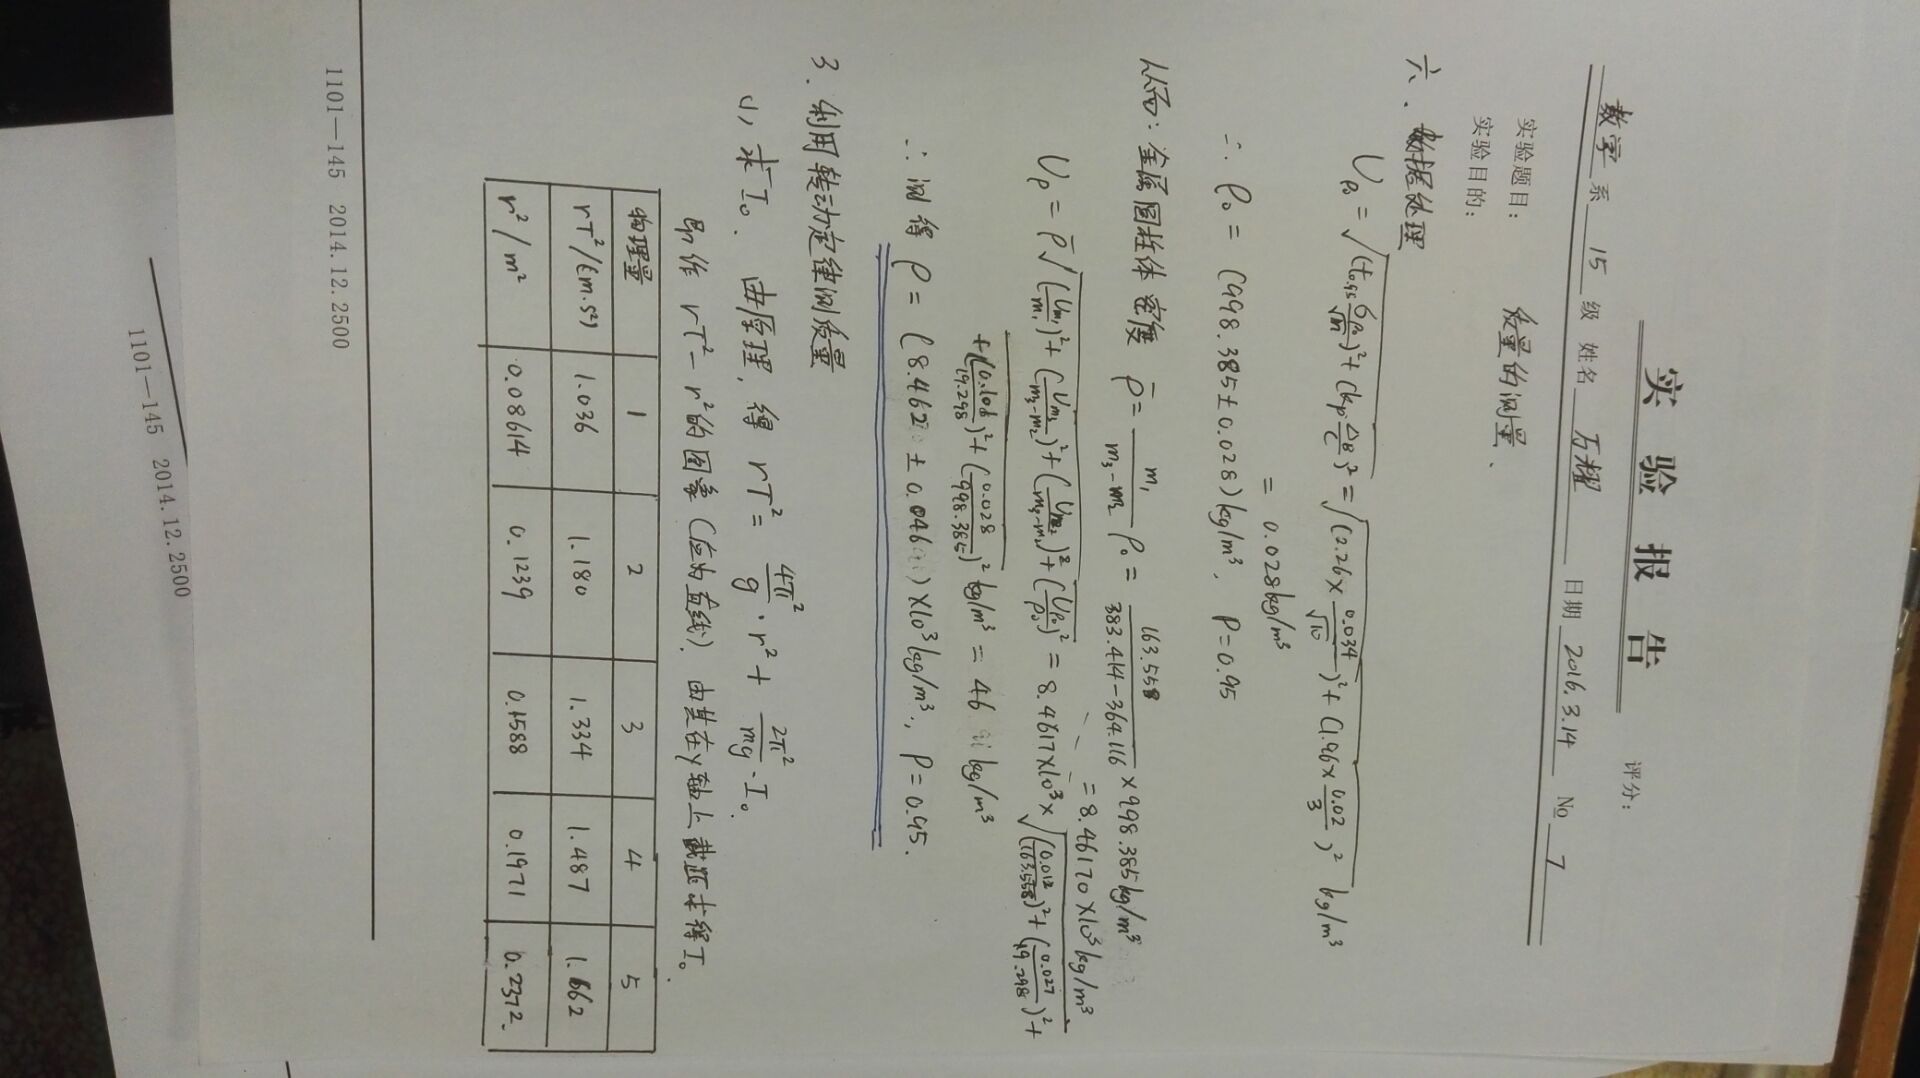 实 验 报 告
评分：
数学 系 15 级 姓名 万耀 日期 2016.3.14 No 7
实验题目： 质量的测量、
实验目的：
六、数据处理
U_ρ₀ = √((t₀.₉₅ σ_ρ₀/√n)² + (k_p Δ_B/C)²) = √((2.26 × 0.034/√10)² + (1.96 × 0.02/3)²) kg/m³
= 0.028 kg/m³
∴ ρ₀ = (998.385 ± 0.028) kg/m³, P = 0.95
从而: 金属圆柱体密度 ρ̄ = m₁/(m₃-m₂) ρ₀ = 163.558/(383.414-364.116) × 998.385 kg/m³
= 8.46170 × 10³ kg/m³
U_ρ = ρ̄ √((U_m₁/m₁)² + (U_m₃/(m₃-m₂))² + (U_m₂/(m₃-m₂))² + (U_ρ₀/ρ₀)²) = 8.4617 × 10³ × √((0.012/163.558)² + (0.027/19.298)² +
+ (0.106/19.298)² + (0.028/998.385)²) kg/m³ = 46 kg/m³
∴ 测得 ρ = (8.462 ± 0.046) × 10³ kg/m³, P = 0.95.
3. 利用转动定律测质量
(1) 求 I₀. 由原理, 得 rT² = 4π²/g · r² + 2π²/mg · I₀.
即作 rT² - r² 的图象 (应为直线), 由其在y轴上截距求得I₀.
物理量 1 2 3 4 5
rT²/(m·s²) 1.036 1.180 1.334 1.487 1.662
r²/m² 0.08614 0.1239 0.1588 0.1971 0.2372
1101—145 2014.12.2500
1101—145 2014.12.2500